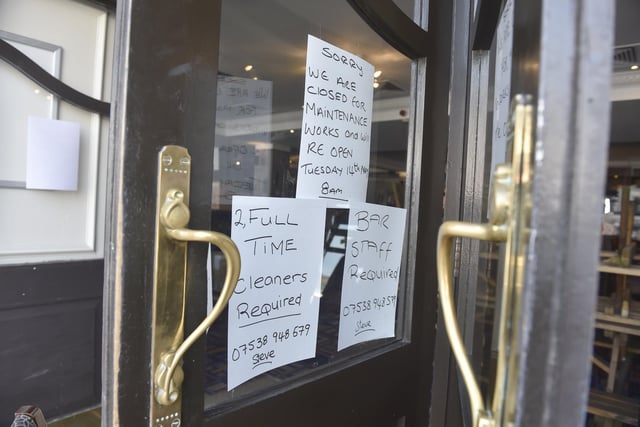 SORRY
WE ARE
CLOSED FOR
MAINTENANCE
WORKS and WILL
RE OPEN
TUESDAY 14th Nov
8am
2 FULL
TIME
Cleaners
Required
07538 948 579
Steve
BAR
STAFF
Required
07538 948 579
Steve